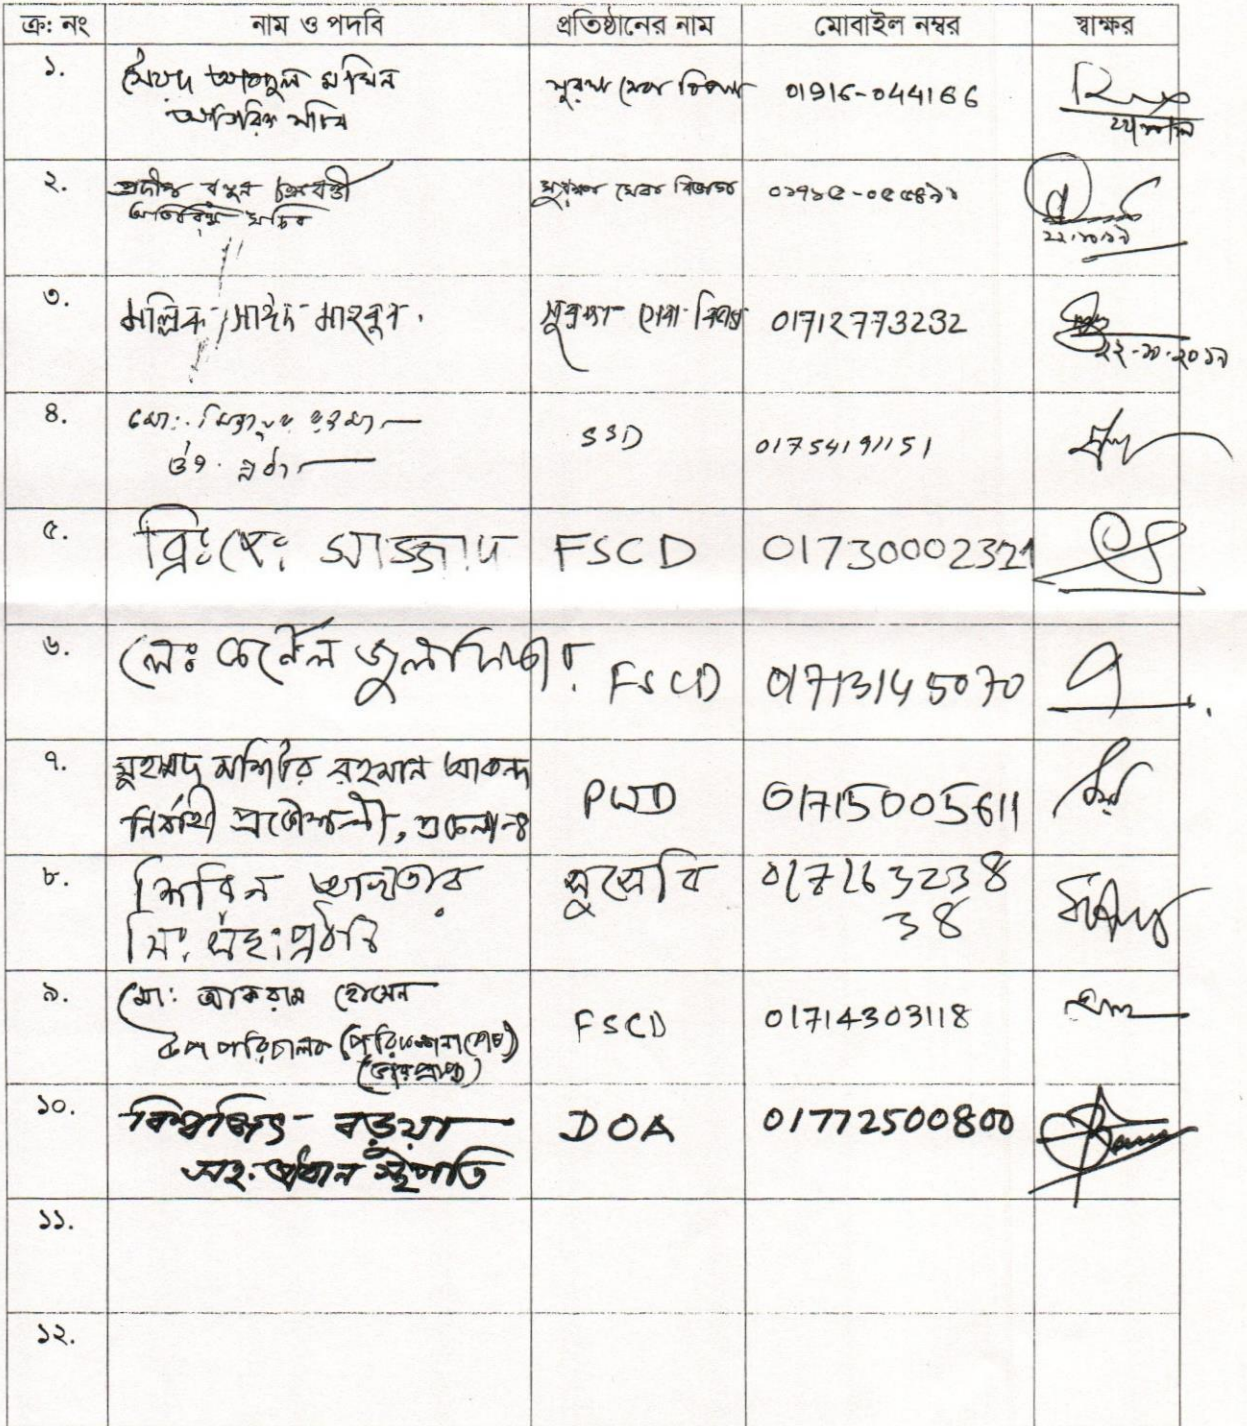 ক্র: নং নাম ও পদবি প্রতিষ্ঠানের নাম মোবাইল নম্বর স্বাক্ষর
১. সৈয়দ আবদুল মমিন
অতিরিক্ত সচিব
সুরক্ষা সেবা বিভাগ 01916-044166
২. প্রদীপ রঞ্জন চক্রবর্তী
অতিরিক্ত সচিব
সুরক্ষা সেবা বিভাগ
২২.১০.১৭
৩. মল্লিক সাঈদ মাহবুব সুরক্ষা সেবা বিভাগ 01712773232
২২-১০-২০১৭
৪. মো:
SSD 01754191151
৫. ব্রিঃ জেঃ সাজ্জাদ FSCD 01730002321
৬. লেঃ কর্নেল জুলফিকার FSCD 01713145070
৭. মুহম্মদ মশিউর রহমান আকন্দ
নির্বাহী প্রকৌশলী,
PWD 01715005611
৮. শিরিন আখতার
সুসেবি 0171163238
38
৯. মো: আকরাম হোসেন
উপ পরিচালক
(ভারপ্রাপ্ত)
FSCD 01714303118
১০. বিশ্বজিৎ বড়ুয়া
সহ: প্রধান স্থপতি
DOA 01772500800
১১.
১২.